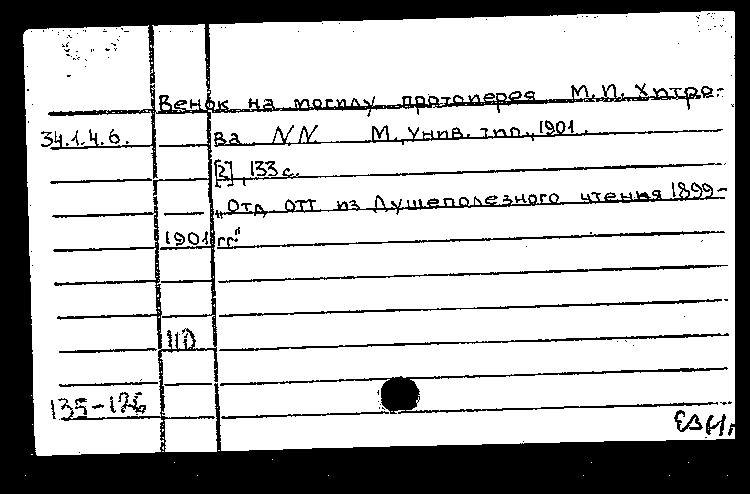 Венок на могилу протоиерея М.П. Хитро-
34.1.4.6. ва N.N. М., Унив. тип., 1901.
[2], 133 с.
„Отд отт из Душеполезного чтения 1899-
1901 гг."
135-126